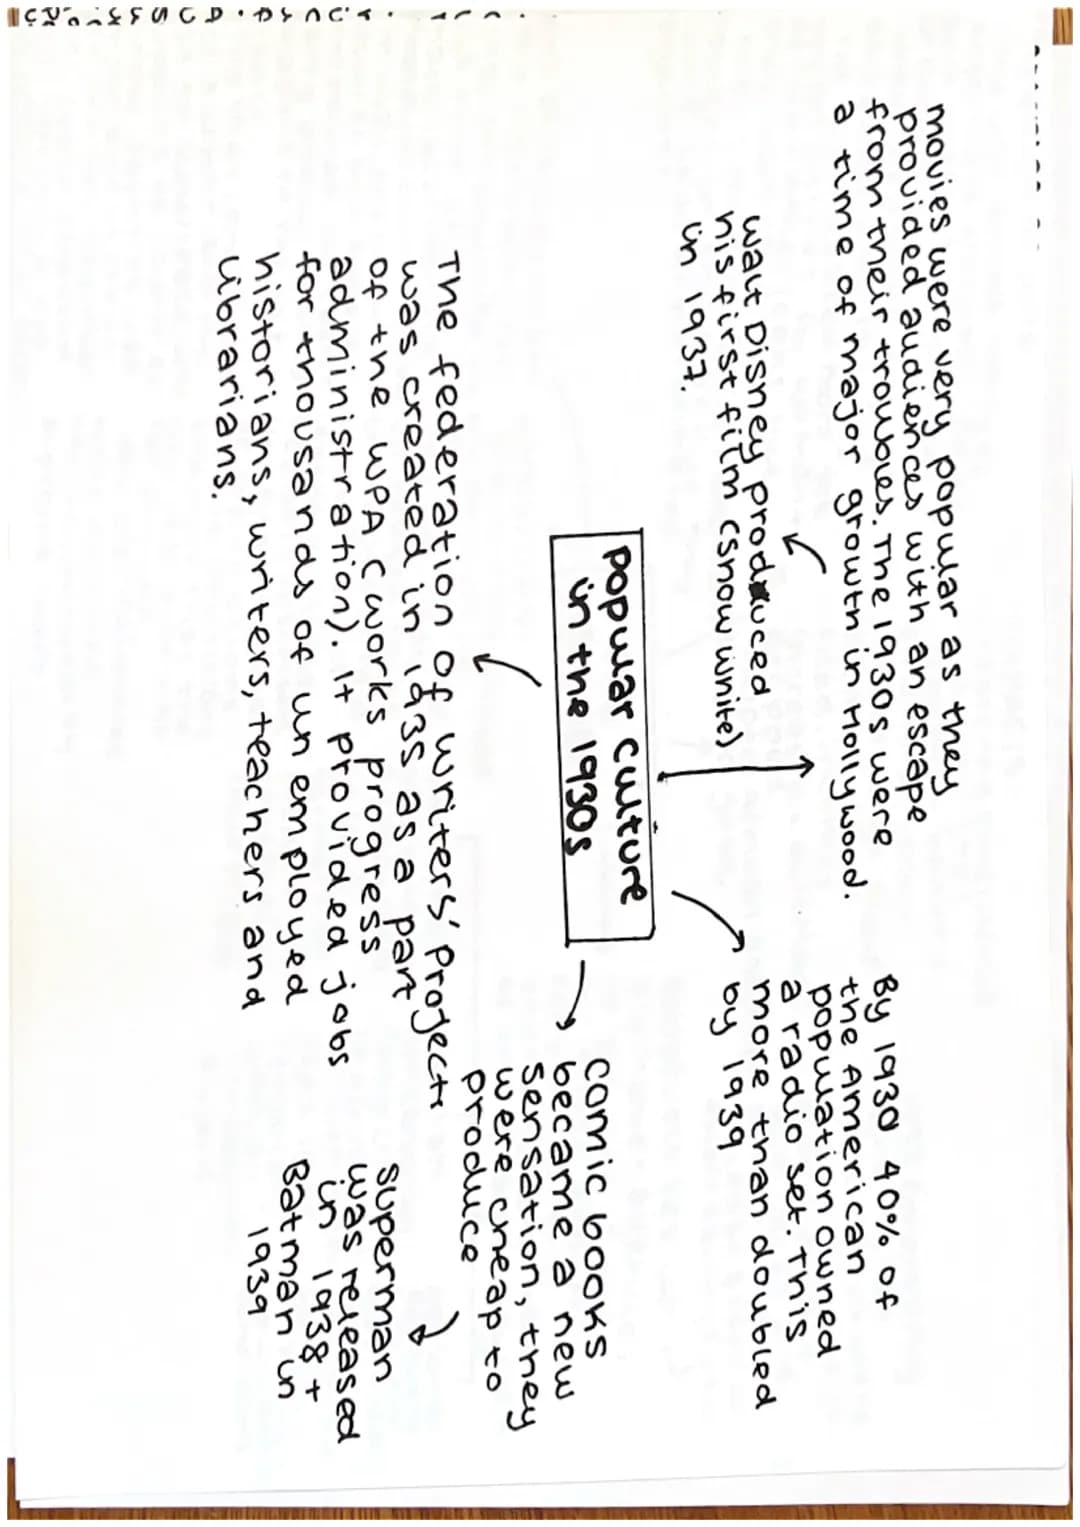 movies were very popular as they
provided audiences with an escape
from their troubles. The 1930s were
a time of major growth in Hollywood.
Walt Disney produced
his first film (snow white)
in 1937.
By 1930 40% of
the American
population owned
a radio set. This
more than doubled
by 1939
popular culture
in the 1930s
comic books
became a new
sensation, they
were cheap to
produce
Superman
was released
in 1938 +
Batman in
1939
The federation of writers' Project
was created in 1935 as a part
of the WPA (works progress
administration). It provided jobs
for thousands of un employed
historians, writers, teachers and
librarians.